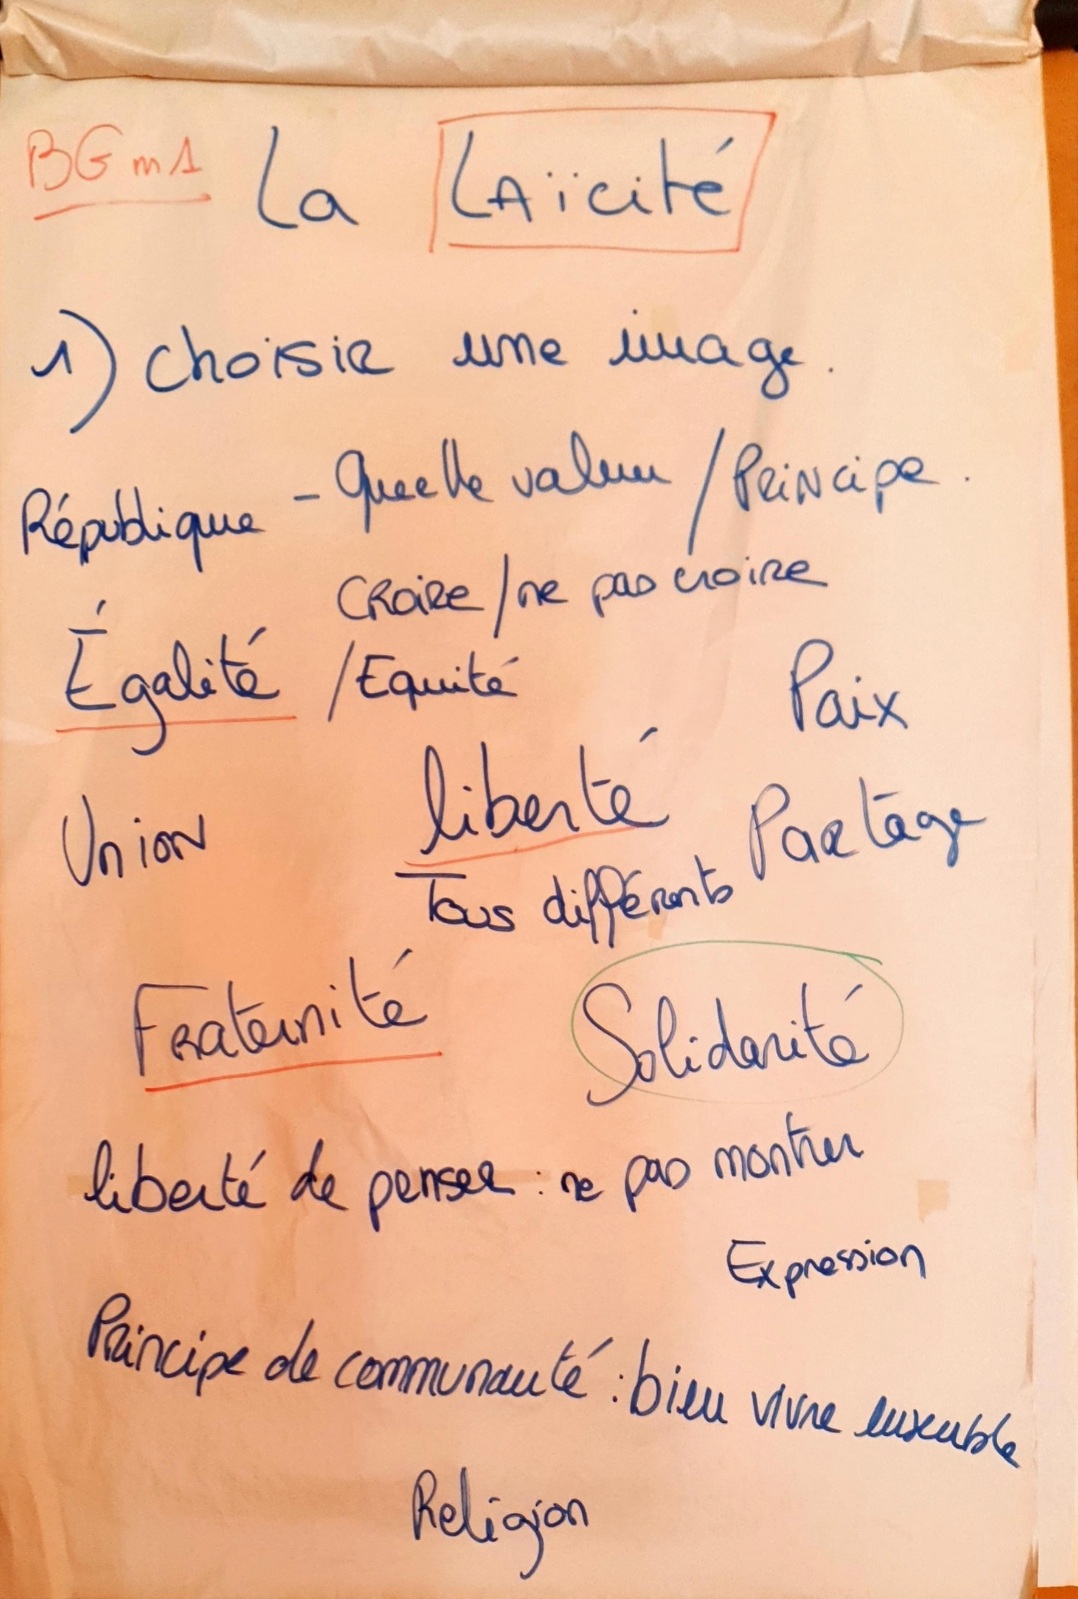 BGm1 La LAïcité
1) choisir une image.
République - Quelle valeur / Principe.
Croire / ne pas croire
Égalité / Equité
Paix
Union liberté Partage
Tous différents
Fraternité Solidarité
liberté de penser : ne pas montrer
Expression
Principe de communauté : bien vivre ensemble
Religion